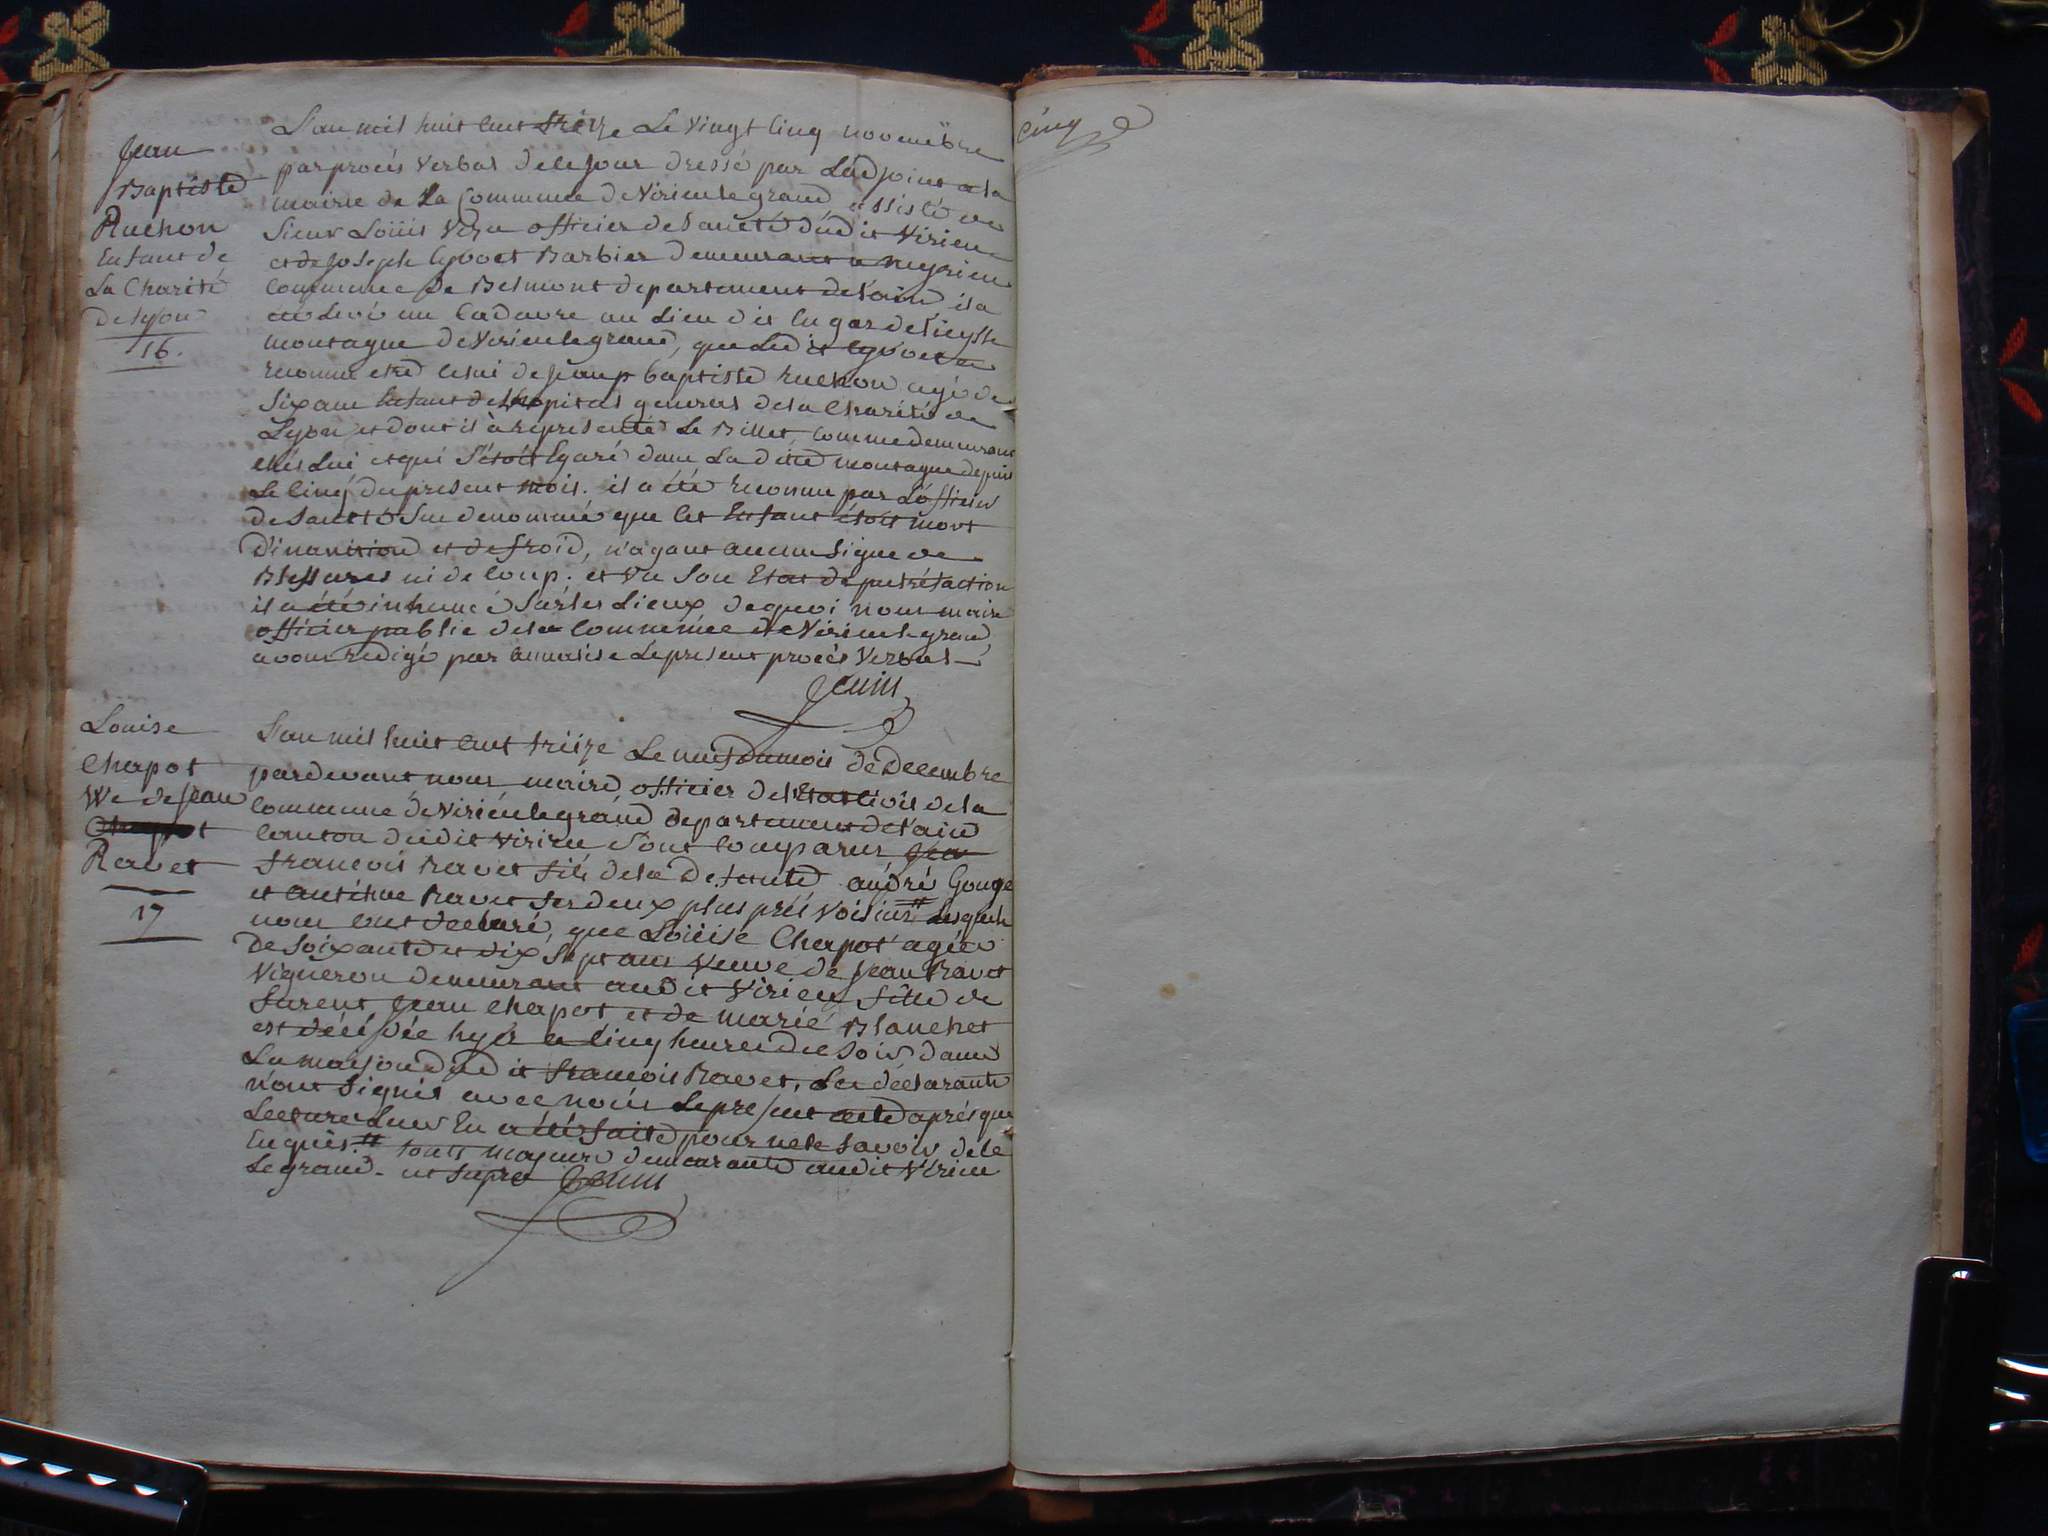 Jean
Baptiste
Ruchon
Enfant de
La Charité
De Lyon
16.
L'an mil huit Cent treize Le vingt Cinq novembre
par procès verbal de ce jour dressé par L'adjoint a la
mairie de La Commune de Virieu le grand assisté du
Sieur Loüis officier de Santé dudit Virieu
et de Joseph Cyvoct Barbier demeurant a meyrieu
Commune de Belmont departement de l'ain, il a
été Levé un Cadavre au Lieu dit
montagne de Virieu le grand, que Ledit Cyvoct a
reconnu etre Celui de jean baptiste ruchon agé de
Six ans Enfant de L'hopital general de la Charité de
Lyon et dont il à représenté Le Billet, comme demeurant
chés Lui et qui S'étoit Egaré dans La ditte montagne depuis
Le Cinq du present mois. il a été reconnu par L'officier
de Santé Sus denommé que Cet Enfant étoit mort
D'inanition et de froid, n'ayant aucun Signe de
Blessures ni de Coup. et vu Son Etat de putréfaction
il a été inhumé Sur les Lieux de quoi nous maire
officier public de la Commune de Virieu le grand
avons redigé par Le present procès Verbal
Louise
Chapot
Ve de Jean
Ravet
17
L'an mil huit Cent treize Le neuf du mois de Decembre
pardevant nous maire officier de l'Etat Civil de la
Commune de Virieu le grand departement de l'ain
Canton dudit Virieu Sont Comparus
francois Ravet fils de la defunte andré Gouge
et Ravet Ses deux plus près voisins # Lesquels
nous ont declaré, que Loüise Chapot agée
de Soixante et dix Sept ans Veuve de Jean Ravet
Vigneron demeurant audit Virieu fille de
furent Jean Chapot et de marie Blanchet
est décédée hyer a Cinq heures du Soir dans
La maison dudit francois Ravet, Les déclarants
n'ont Signés avec nous Le present acte après que
Lecture Leur En a été faite pour ne le Savoir de ce
Enquis. # touts majeurs demeurants audit Virieu
Le grand - ut Supra
Cinq